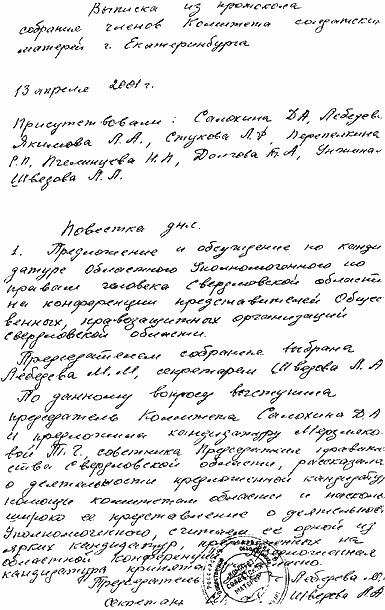 Выписка из протокола
собрания членов Комитета солдатских
матерей г. Екатеринбурга
13 апреля 2001 г.
Присутствовали: Салохина Д.А, Лебедева
Якимова Л.А., Стукова Л.Ф, Перепелкина
Р.П. Пчелинцева Н.Н, Долгова Т.А,
Шведова Л.Л.
Повестка дня.
1. Предложение и обсуждение по канди
датуре Областного Уполномоченного по
правам человека Свердловской области
на конференции представителей Общест
венных, правозащитных организаций
Свердловской области.
Председателем собрания выбрана
Лебедева М.М, секретарем Шведова Л.Л
По данному вопросу выступила
председатель Комитета Салохина Д.А
и предложила кандидатуру Мерзляко
вой Т.Г, советника Председателя правитель
ства Свердловской области, рассказала
о деятельности предложенной кандидатуры,
помощи комитетам области и насколько
широко ее представление о деятельности
Уполномоченного, считаем ее одной из
ярких кандидатур, предложенных на
областной Конференции.
кандидатура принята
Председатель Лебедева М.
Секретарь Шведова